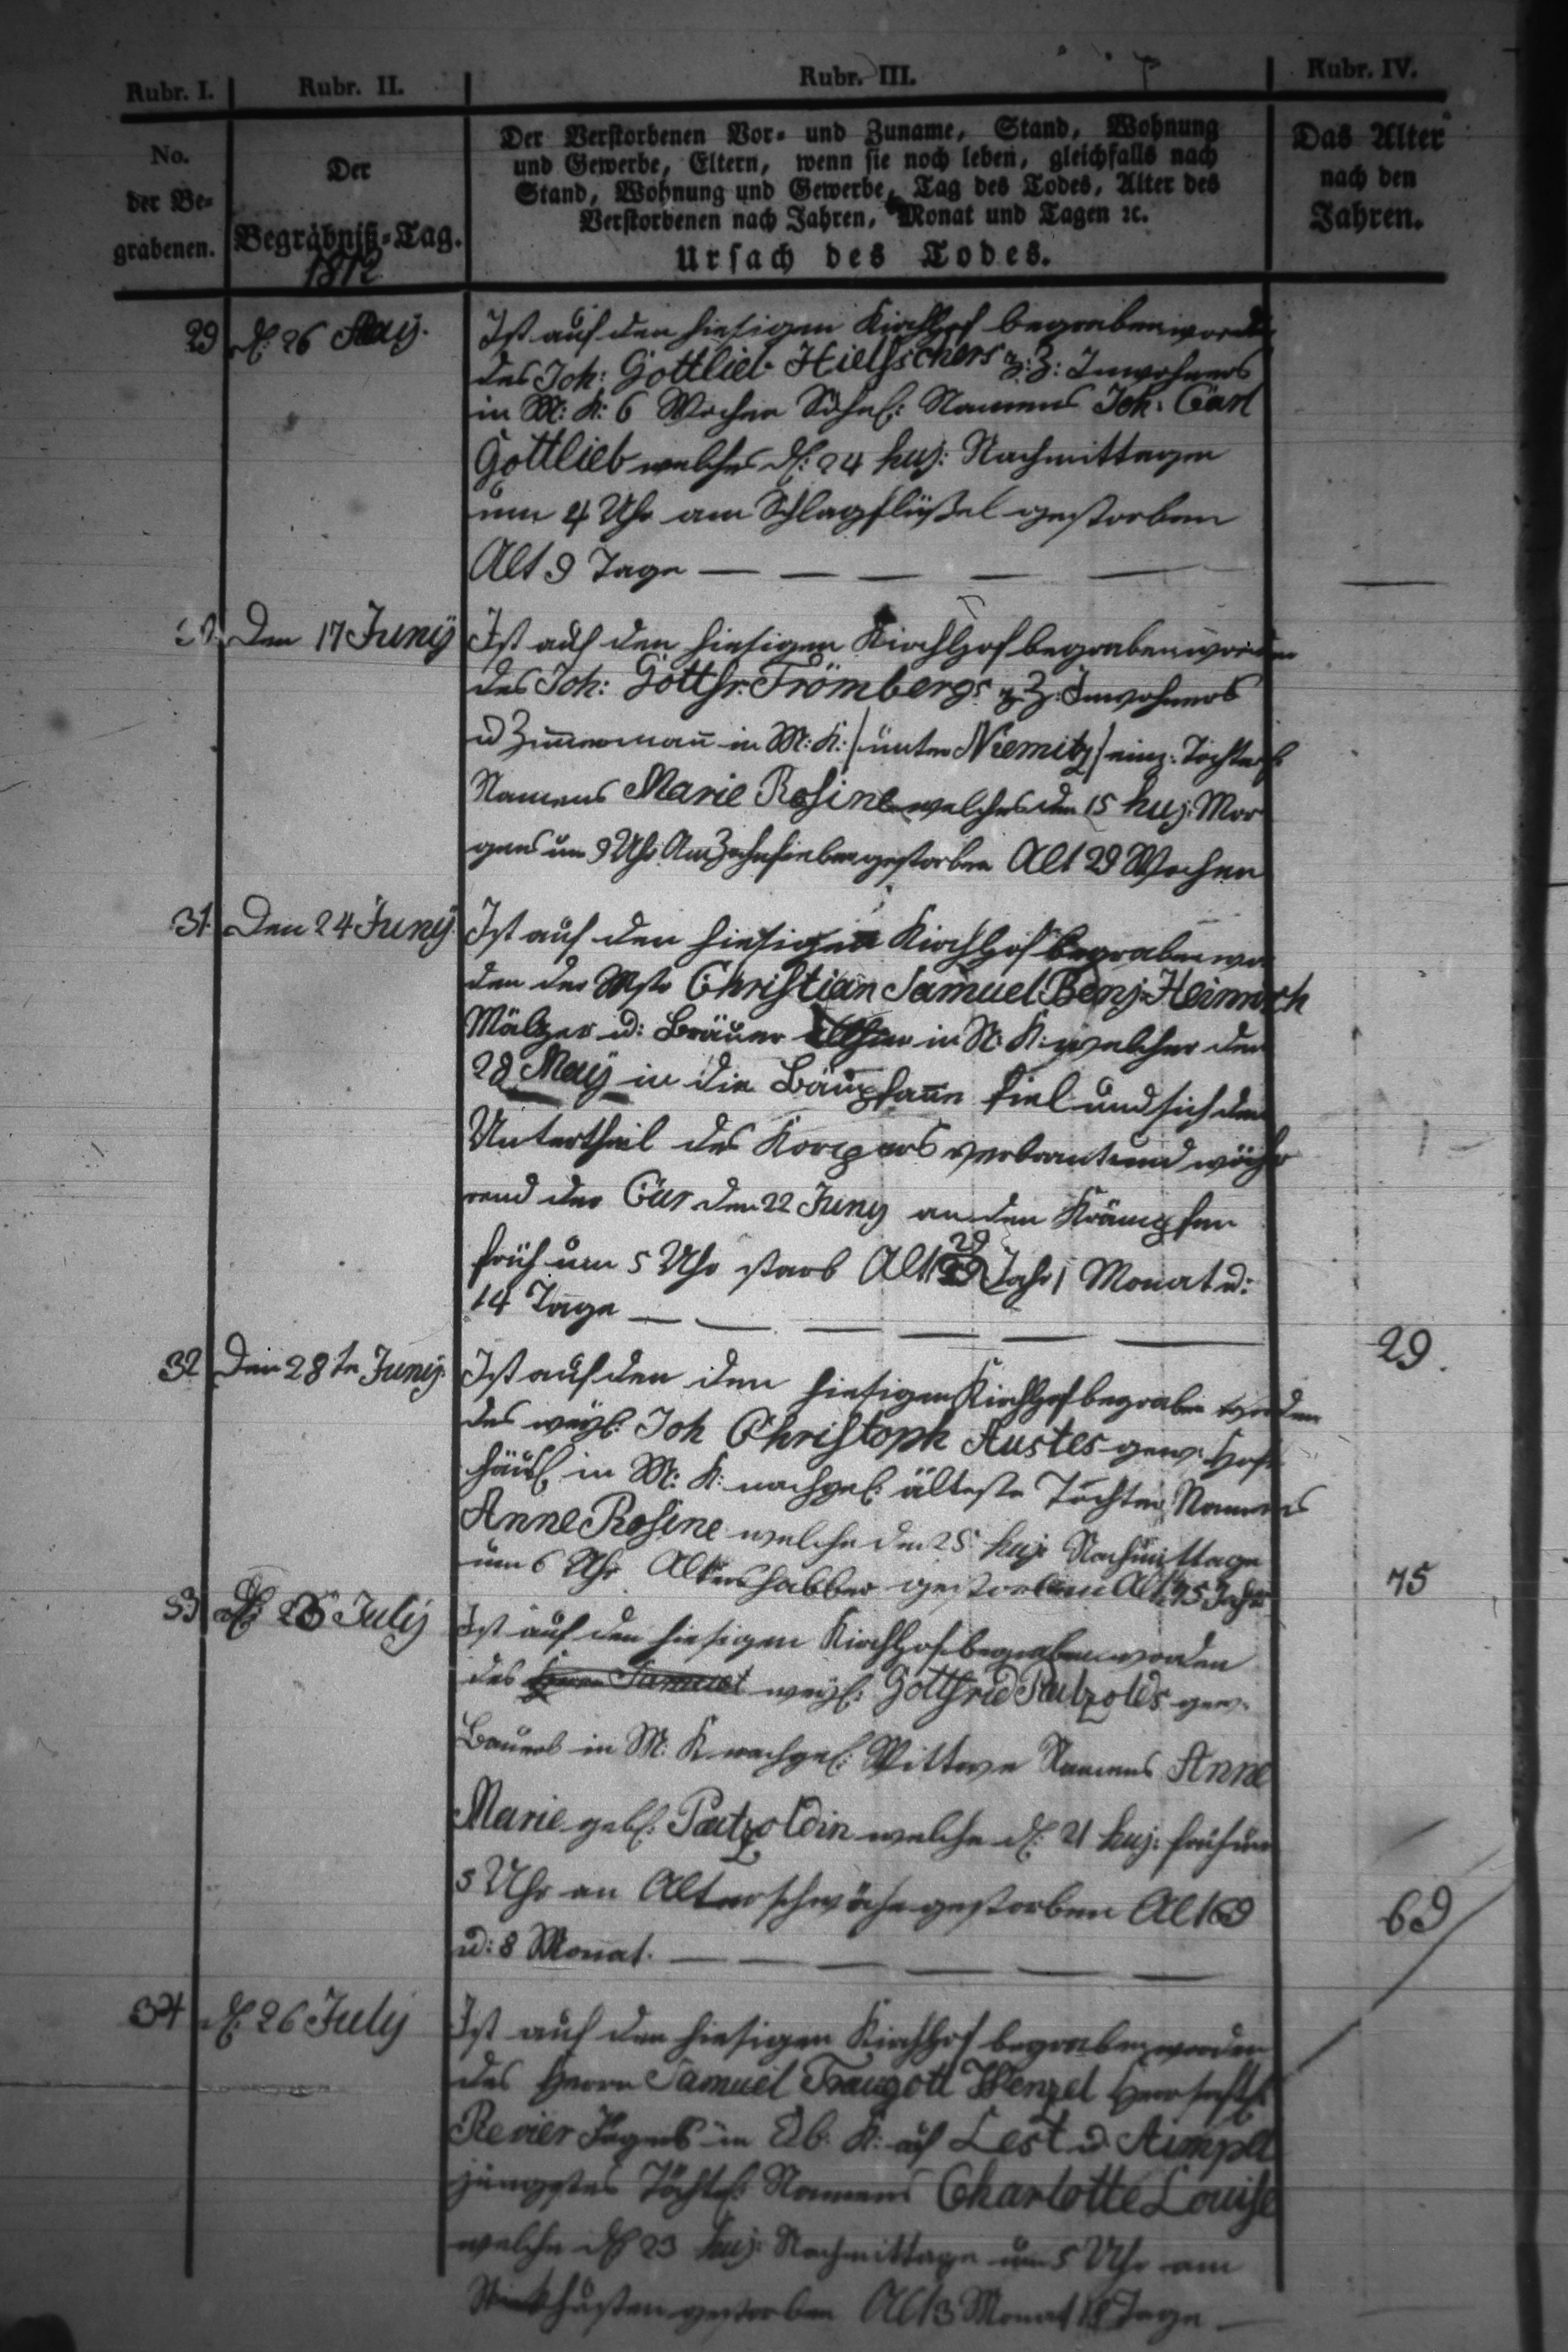 Rubr. I. Rubr. II. Rubr. III. Rubr. IV.
No. der Be- grabenen.
Der Begräbniß-Tag. 1812
Der Verstorbenen Vor- und Zuname, Stand, Wohnung
und Gewerbe, Eltern, wenn sie noch leben, gleichfalls nach
Stand, Wohnung und Gewerbe, Tag des Todes, Alter des
Verstorbenen nach Jahren, Monat und Tagen ꝛc.
Ursach des Todes.
Das Alter
nach den
Jahren.
29 d. 26 May. Ist auf den hiesigen Kirchhof begraben worden
des Joh: Gottlieb Hielschers z: Z: Inwohners
in M: K: 6 Wochen Söhnl: Namens Joh: Carl
Gottlieb welches d: 24 huj: Nachmittagen
um 4 Uhr am Schlagflüßel gestorben
Alt 9 Tage
30. Den 17 Junÿ Ist auf den hiesigen Kirchhof begraben worden
des Joh: Gottfr: Frömbergs z: Z: Inwohners
u Zimmermañ in M: K: / unter Niemitz / einz: Töchterl:
Namens Marie Rosine welches den 15 huj: Mor
gens um 9 Uhr Am Zahnfieber gestorben Alt 29 Wochen
31. Den 24 Junÿ Ist auf den hiesigen Kirchhof begraben wor
den der Mstr Christian Samuel Benj: Heinrich
Mältzer u: Bräuer in N: K: welcher den
28 Maÿ in die Bäupfañe fiel und sich den
Untertheil des Korpers verbrant und wäh
rend der Cur den 22 Junÿ an den Krämpfen
früh um 5 Uhr starb Alt 29 Jahr 1 Monat u:
14 Tage
29.
32 Den 28te Junÿ. Ist auf den den hiesigen Kirchhof begraben worden
des weyl: Joh Christoph Kustes gew: Hof
häusl: in M: K: nachgel: älteste Tochter Namens
Anne Rosine welche den 25 huj: Nachmittage
um 6 Uhr Altershalber gestorben Alt 75 Jahr
75
33 d: 23 Julÿ Ist auf den hiesigen Kirchhof begraben worden
des Herrn Samuel weyl: Gottfried Paetzolds gew:
Bauers in M: K nachgel: Wittwe Namens Anne
Marie gebl: Paetzoldin welche d: 21 huj: früh um
5 Uhr an Alterschwäche gestorben Alt 69
u: 8 Monat.
69
34 d: 26 Julÿ Ist auf den hiesigen Kirchhof begraben worden
des Herrn Samuel Traugott Wenzel Herrschftl:
Revier Jägers in Ob: K: auf Lest u.
jüngstes Töchterl: Namens Charlotte Louise
welche d: 23 huj: Nachmittage um 5 Uhr am
Stickhusten gestorben Alt 3 Monat 18 Tage